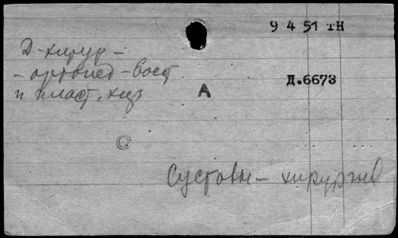 9 4 51 ТН
Д-хирур -
- ортопед - вост
и пласт. хир
А
Д.6673
С
Суставы - хирургия